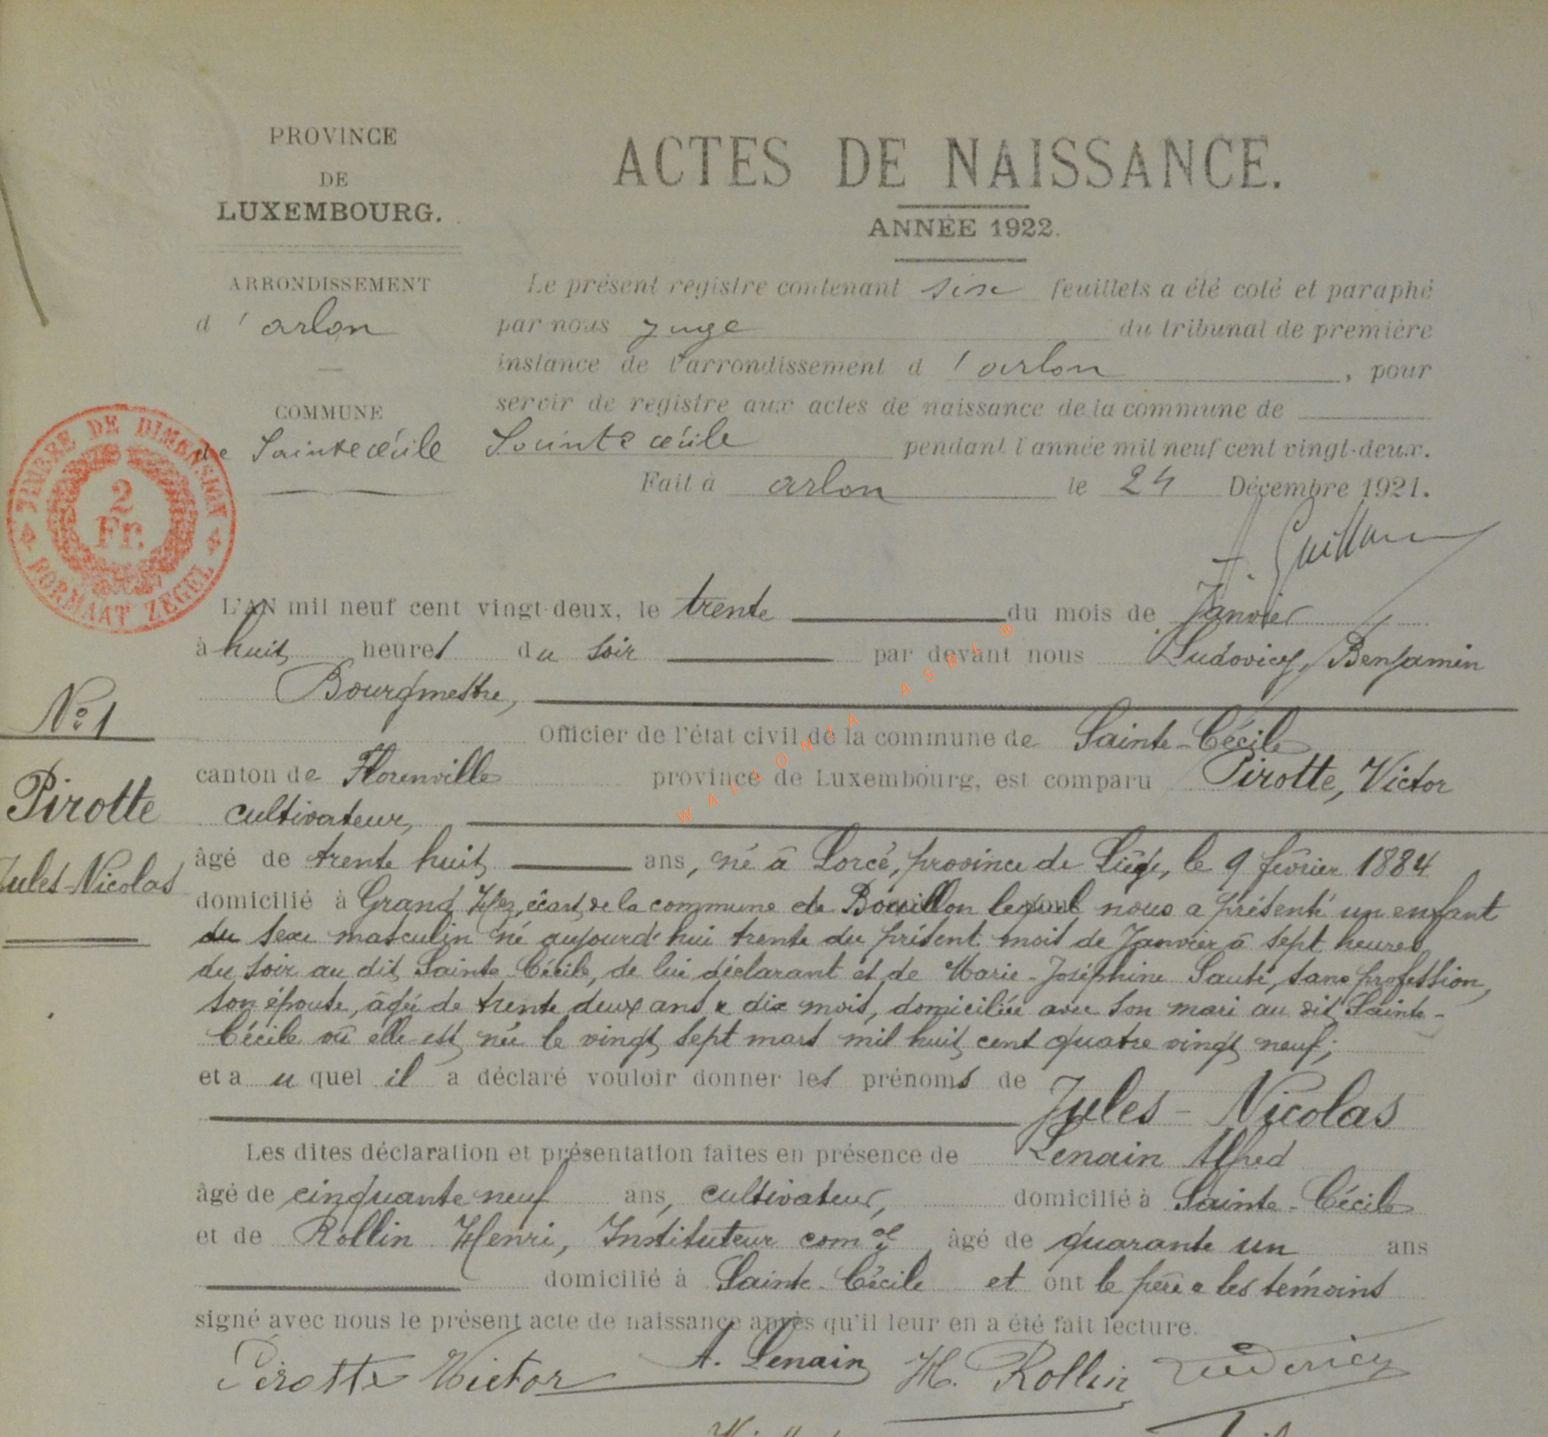 PROVINCE
DE
LUXEMBOURG.
ARRONDISSEMENT
d'arlon
COMMUNE
de Sainte cécile
TIMBRE DE DIMENSION
2
Fr.
FORMAAT ZEGEL
ACTES DE NAISSANCE.
ANNÉE 1922.
Le présent registre contenant six feuillets a été coté et paraphé
par nous juge du tribunal de première
instance de l'arrondissement d'arlon, pour
servir de registre aux actes de naissance de la commune de
Sainte cécile pendant l'année mil neuf cent vingt-deux.
Fait à arlon le 24 Décembre 1921.
No 1
Pirotte
Jules-Nicolas
L'AN mil neuf cent vingt-deux, le trente du mois de Janvier
à huit heures du soir par devant nous Ludovicy, Benjamin
Bourgmestre,
Officier de l'état civil de la commune de Sainte-Cécile
canton de Florenville province de Luxembourg, est comparu Pirotte, Victor
cultivateur,
âgé de trente huit ans, né à Lorcé, province de Liège, le 9 février 1884
domicilié à Grand écart de la commune de Bouillon lequel nous a présenté un enfant
du sexe masculin né aujourd'hui trente du présent mois de Janvier à sept heures
du soir au dit Sainte-Cécile, de lui déclarant et de Marie-Joséphine Sauté, sans profession,
son épouse, âgée de trente deux ans & dix mois, domiciliée avec son mari au dit Sainte-
Cécile où elle est née le vingt sept mars mil huit cent quatre vingt neuf;
et auquel il a déclaré vouloir donner les prénoms de Jules-Nicolas
Les dites déclaration et présentation faites en présence de Lenain Alfred
âgé de cinquante neuf ans, cultivateur, domicilié à Sainte-Cécile
et de Rollin Henri, Instituteur comal âgé de quarante un ans
domicilié à Sainte-Cécile et ont le père & les témoins
signé avec nous le présent acte de naissance après qu'il leur en a été fait lecture.
Pirotte Victor A. Lenain H. Rollin Ludovicy
WALLONIA ASBL ®